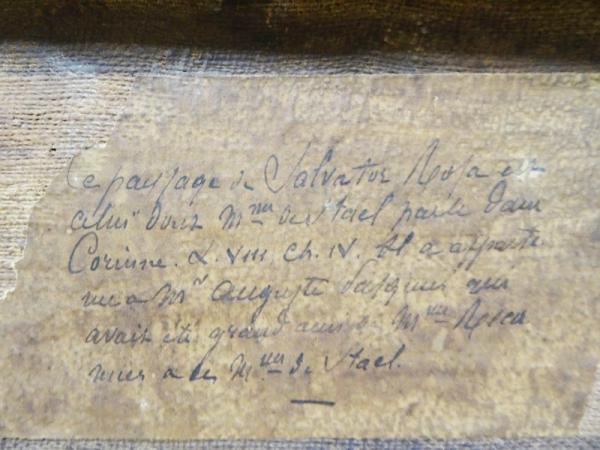 Ce paysage de Salvator Rosa est
celui dont Mme de Stael parle dans
Corinne. L. VIII Ch. IV. Il a apparte
nu a Mr Auguste Pasquier qui
avait été grand ami de Mme Reca
mier et de Mme de Stael.